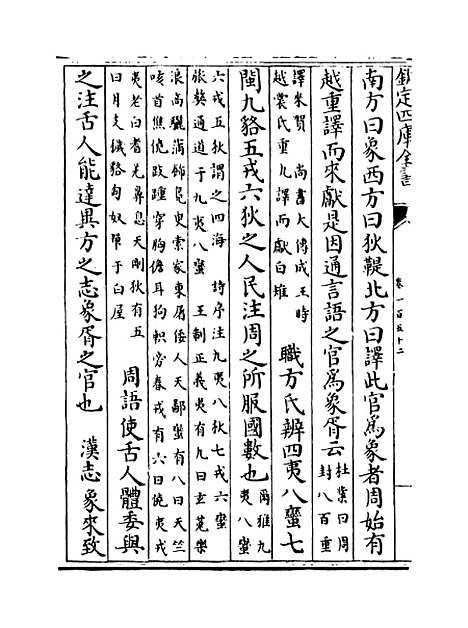 欽定四庫全書
卷一百五十二
南方曰象西方曰狄鞮北方曰譯此官為象者周始有
越重譯而來獻是因通言語之官為象胥云
杜業曰周
封八百重
譯來賀 尚書大傳成王時
越裳氏重九譯而獻白雉
職方氏辨四夷八蠻七
閩九貉五戎六狄之人民注周之所服國數也
爾雅九
夷八蠻
六戎五狄謂之四海 詩序注九夷八狄七戎六蠻
旅獒通道于九夷八蠻 王制正義夷有九曰玄菟樂
浪高驪滿飾鳧臾索家東屠倭人天鄙蠻有八曰天竺
咳首僬僥跂踵穿胸儋耳狗軹旁舂戎有六曰僥夷戎
夷老白耆羌鼻息天剛狄有五
曰月支穢貊匈奴單于白屋
周語使舌人體委與
之注舌人能達異方之志象胥之官也 漢志象來致